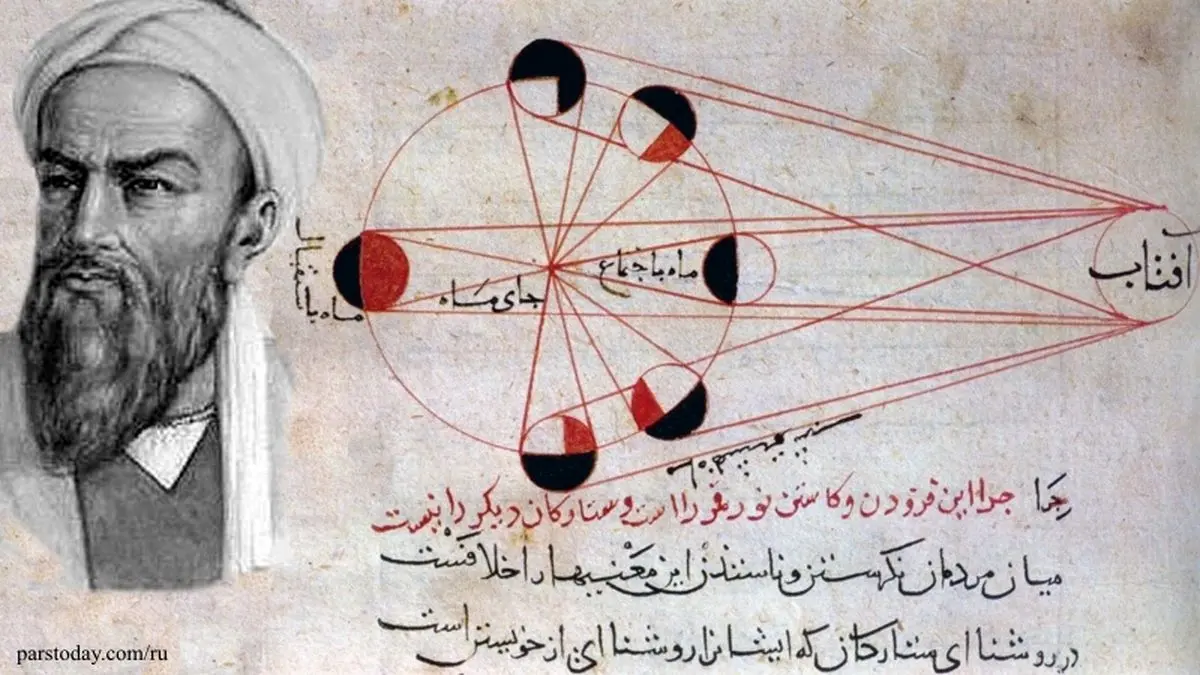 آفتاب
ماه باجتماع
جای ماه
ماه باستقبال
چرا این فزودن و کاستن نور قمر را است و ستارکان دیکر را نیست
میان مردمان نکرستن و ناستدن این معنیها را خلافست
در روشنا ای ستارکان که ایشانرا روشنا ای از خویشتن است
parstoday.com/ru